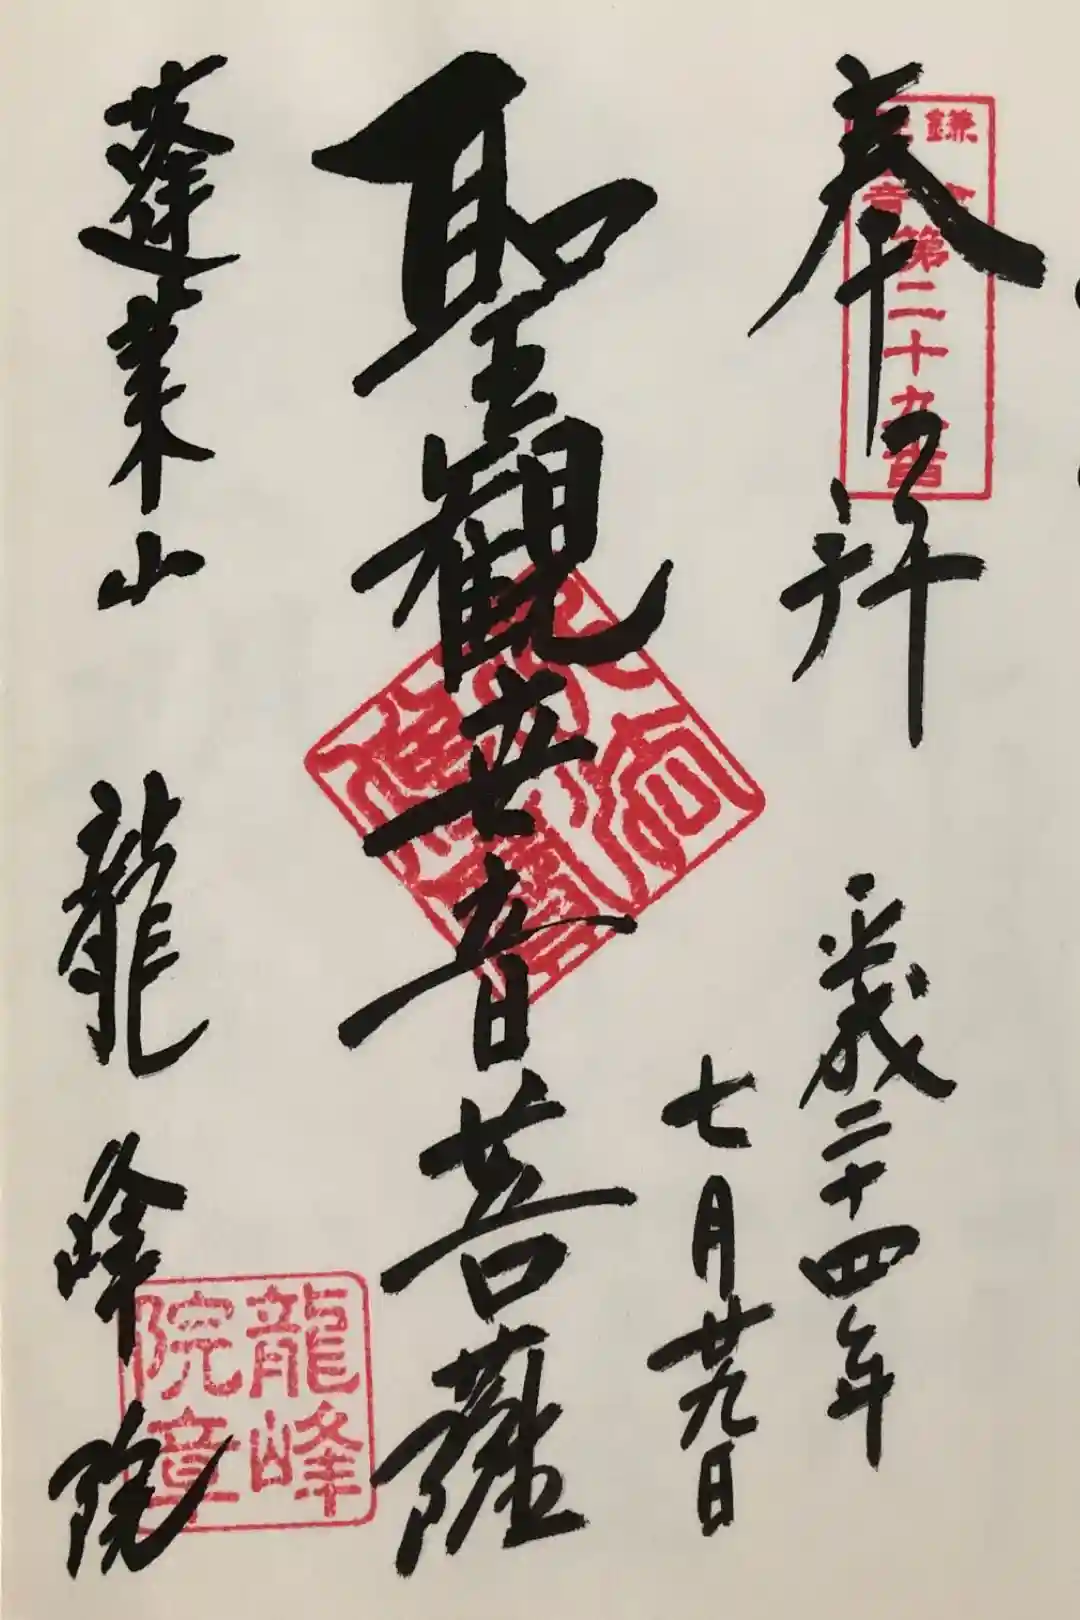 奉拝
鎌倉観音第二十九番
平成二十四年
七月廿九日
聖観世音菩薩
蓬莱山 龍峰院
龍峰
院章